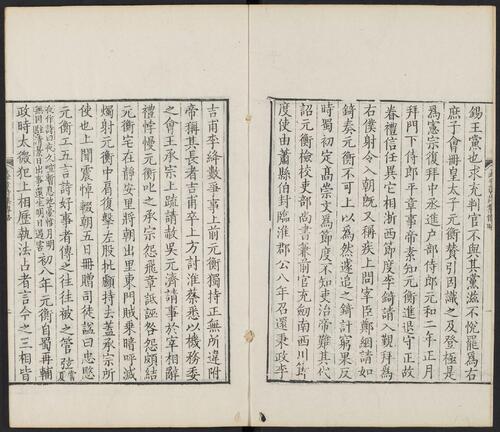 錫王黨也求充判官不與其黨滋不悅罷爲右
庶子會冊皇太子元衡贊引因識之及登極是
爲憲宗復拜中丞進戶部侍郎元和二年正月
拜門下侍郎平章事帝素知元衡進退守正故
眷禮信任異它相浙西節度李錡請入覲拜爲
右僕射令入朝旣又稱疾上問宰臣鄭絪請如
錡奏元衡不可上以爲然遽追之錡計窮果反
時蜀初定高崇文爲節度不知吏治帝難其代
詔元衡檢校吏部尙書兼前官充劍南西川節
度使由蕭縣伯封臨淮郡公八年召還秉政李
吉甫李絳數爭事上前元衡獨持正無所違附
帝稱其長者吉甫卒上方討淮蔡悉以機務委
之會王承宗上疏請赦吳元濟請事於宰相辭
禮悖慢元衡叱之承宗怨飛章詆誣咎怨頗結
元衡宅在靜安里將朝出里東門賊乘暗呼滅
燭射元衡中肩復擊左股批顱持去蓋承宗所
使也上聞震悼輟朝五日冊贈司徒謚曰忠愍
元衡工五言詩好事者傳之往往被之管弦
夜作詩曰夜久喧暫息池臺惟月明
無因駐淸景日出事還生明日遇害
初八年元衡自蜀再輔
政時太微犯上相歷執法占者言今之三相皆